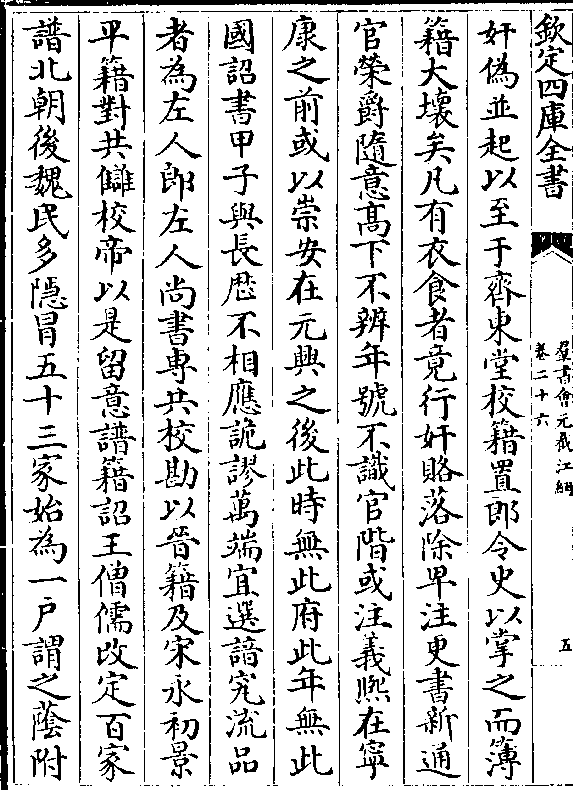 欽定四庫全書
羣書會元截江網
卷二十六
五
奸偽並起以至于齊東堂校籍置郎令史以掌之而簿
籍大壞矣凡有衣食者竟行奸賂落除卑注更書新通
官榮爵隨意髙下不辨年號不識官階或注義熙在寧
康之前或以崇安在元興之後此時無此府此年無此
國詔書甲子與長厯不相應詭謬萬端宜選諳究流品
者為左人郎左人尚書專共校勘以晉籍及宋永初景
平籍對共讎校帝以是留意譜籍詔王僧儒改定百家
譜北朝後魏民多隠冒五十三家始為一户謂之蔭附